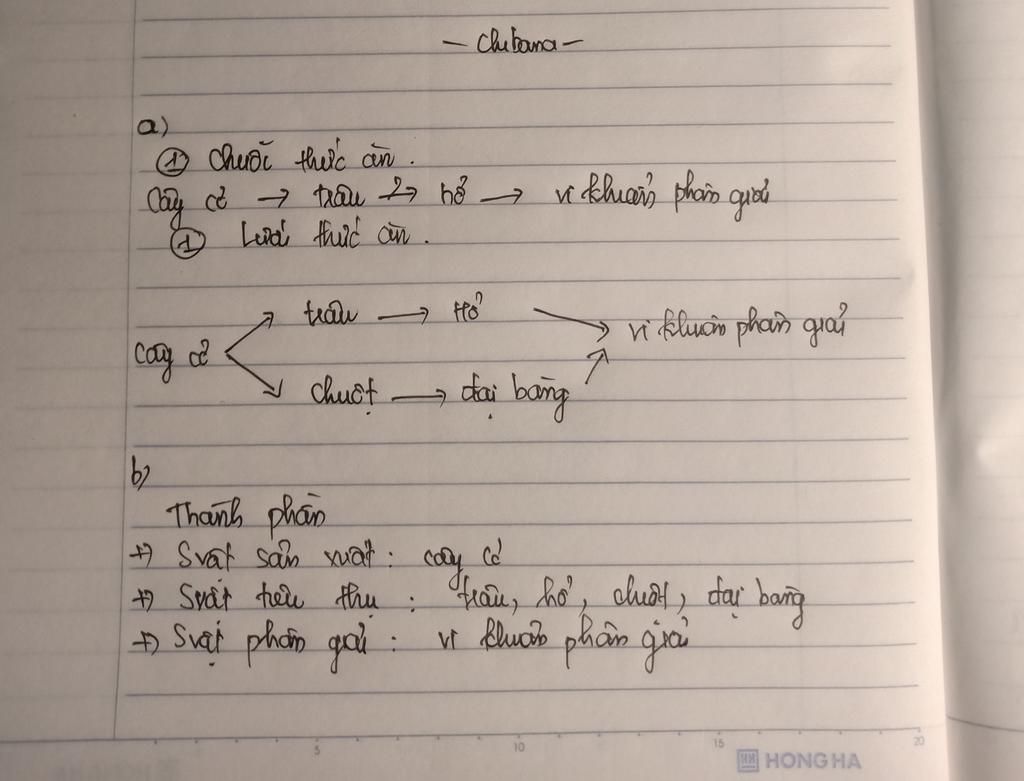 - Chibana -
a)
① Chuỗi thức ăn.
Cây cỏ → trâu → hổ → vi khuẩn phân giải
① Lưới thức ăn.
trâu → Hổ
Cây cỏ vi khuẩn phân giải
chuột → đại bàng
b)
Thành phần
+) Svật sản xuất : cây cỏ
+) Svật tiêu thụ : trâu, hổ, chuột, đại bàng
+) Svật phân giải : vi khuẩn phân giải
5 10 15 20
HONG HA